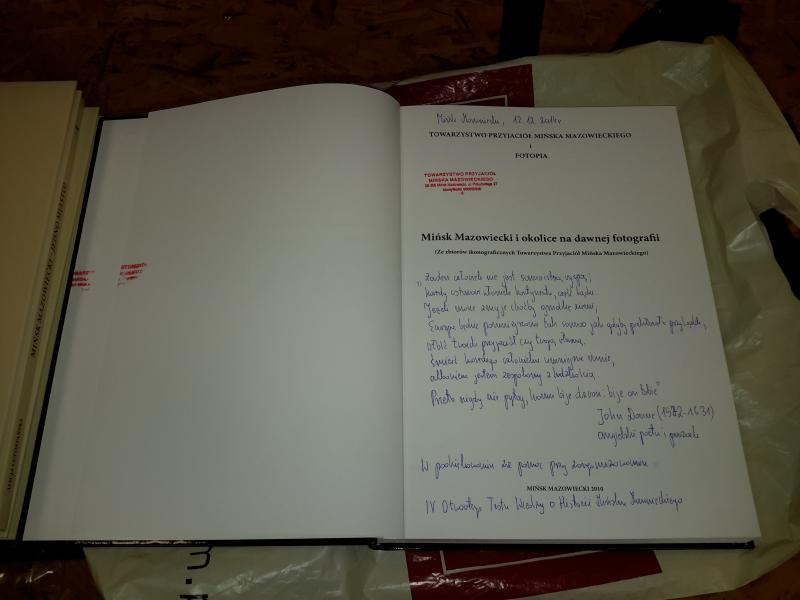 Mińsk Mazowiecki, 12.12.2014r
TOWARZYSTWO PRZYJACIÓŁ MIŃSKA MAZOWIECKIEGO
i
FOTOPIA
TOWARZYSTWO PRZYJACIÓŁ
MIŃSKA MAZOWIECKIEGO
Mińsk Mazowiecki i okolice na dawnej fotografii
(Ze zbiorów ikonograficznych Towarzystwa Przyjaciół Mińska Mazowieckiego)
„Żaden człowiek nie jest samoistną wyspą;
każdy stanowi ułomek kontynentu, część lądu.
Jeżeli morze zmyje choćby grudkę ziemi,
Europa będzie pomniejszona tak samo jak gdyby pochłonęło przylądek,
włość twoich przyjaciół czy twoją własną.
Śmierć każdego człowieka umniejsza mnie,
albowiem jestem zespolony z ludzkością.
Przeto nigdy nie pytaj, komu bije dzwon: bije on tobie"
John Donne (1572-1631)
angielski poeta i prozaik
W podziękowaniu za pomoc przy zorganizowaniu
MIŃSK MAZOWIECKI 2010
IV Otwartego Testu Wiedzy o Historii Mińska Mazowieckiego
MIŃSK MAZOWIECKI